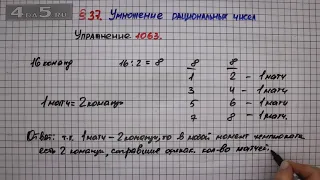 4a5.ru
§ 37. Умножение рациональных чисел
Упражнение 1063.
16 команд 16:2=8 8 8
1 2 - 1 матч
3 4 - 1 матч
1 матч = 2 команды 5 6 - 1 матч
7 8 - 1 матч
Ответ: т.к. 1 матч - 2 команды, то в любой момент чемпионата
есть 2 команды, сыгравшие одинак. кол-во матчей.